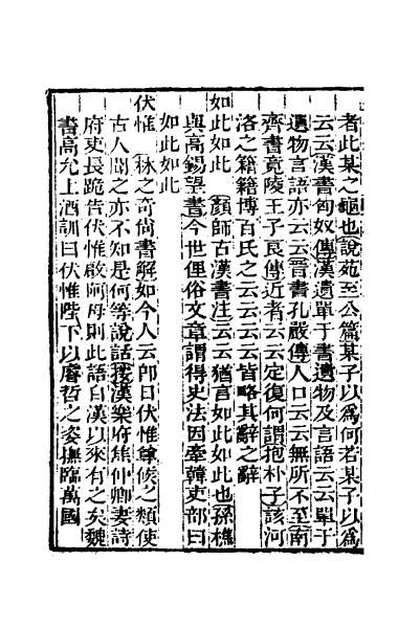 者此某之䫏也說苑至公篇某子以爲何若某子以爲
云云漢書匈奴傳漢遺單于書遺物及言語云云單于
遺物言語亦云云晉書孔嚴傳人口云云無所不至南
齊書竟陵王子良傳近者云云定復何謂抱朴子該河
洛之籍籍博百氏之云云云云皆略其辭之辭
如此如此 顏師古漢書注云云猶言如此如此也孫樵
與高錫望書今世俚俗文章謂得史法因牽韓吏部曰
如此如此
伏惟 林之奇尙書解如今人云卽日伏惟尊候之類使
古人聞之亦不知是何等說話我漢樂府焦仲卿妻詩
府吏長跪告伏惟啟阿母則此語自漢以來有之矣魏
書高允上酒訓曰伏惟陛下以睿哲之姿撫臨萬國